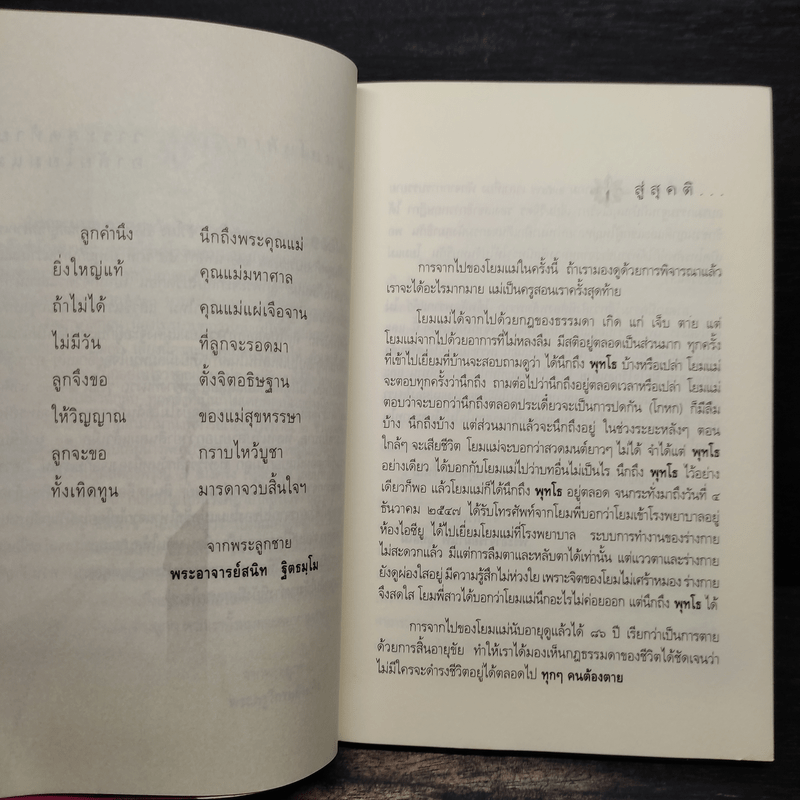 ลูกคำนึง นึกถึงพระคุณแม่
ยิ่งใหญ่แท้ คุณแม่มหาศาล
ถ้าไม่ได้ คุณแม่แผ่เจือจาน
ไม่มีวัน ที่ลูกจะรอดมา
ลูกจึงขอ ตั้งจิตอธิษฐาน
ให้วิญญาณ ของแม่สุขหรรษา
ลูกจะขอ กราบไหว้บูชา
ทั้งเทิดทูน มารดาจวบสิ้นใจฯ
จากพระลูกชาย
พระอาจารย์สนิท ฐิตธมฺโม
สู่สุคติ...
การจากไปของโยมแม่ในครั้งนี้ ถ้าเรามองดูด้วยการพิจารณาแล้ว
เราจะได้อะไรมากมาย แม่เป็นครูสอนเราครั้งสุดท้าย
โยมแม่ได้จากไปด้วยกฎของธรรมดา เกิด แก่ เจ็บ ตาย แต่
โยมแม่จากไปด้วยอาการที่ไม่หลงลืม มีสติอยู่ตลอดเป็นส่วนมาก ทุกครั้ง
ที่เข้าไปเยี่ยมที่บ้านจะสอบถามดูว่า ได้นึกถึง พุทโธ บ้างหรือเปล่า โยมแม่
จะตอบทุกครั้งว่านึกถึง ถามต่อไปว่านึกถึงอยู่ตลอดเวลาหรือเปล่า โยมแม่
ตอบว่าจะบอกว่านึกถึงตลอดประเดี๋ยวจะเป็นการปดกัน (โกหก) ก็มีลืม
บ้าง นึกถึงบ้าง แต่ส่วนมากแล้วจะนึกถึงอยู่ ในช่วงระยะหลังๆ ตอน
ใกล้ๆ จะเสียชีวิต โยมแม่จะบอกว่าสวดมนต์ยาวๆ ไม่ได้ จำได้แต่ พุทโธ
อย่างเดียว ได้บอกกับโยมแม่ไปว่าบทอื่นไม่เป็นไร นึกถึง พุทโธ ไว้อย่าง
เดียวก็พอ แล้วโยมแม่ก็ได้นึกถึง พุทโธ อยู่ตลอด จนกระทั่งมาถึงวันที่ ๔
ธันวาคม ๒๕๔๗ ได้รับโทรศัพท์จากโยมพี่บอกว่าโยมเข้าโรงพยาบาลอยู่
ห้องไอซียู ได้ไปเยี่ยมโยมแม่ที่โรงพยาบาล ระบบการทำงานของร่างกาย
ไม่สะดวกแล้ว มีแต่การลืมตาและหลับตาได้เท่านั้น แต่แววตาและร่างกาย
ยังดูผ่องใสอยู่ มีความรู้สึกไม่ห่วงใย เพราะจิตของโยมไม่เศร้าหมอง ร่างกาย
จึงสดใส โยมพี่สาวได้บอกว่าโยมแม่นึกอะไรไม่ค่อยออก แต่นึกถึง พุทโธ ได้
การจากไปของโยมแม่นับอายุดูแล้วได้ ๘๖ ปี เรียกว่าเป็นการตาย
ด้วยการสิ้นอายุขัย ทำให้เราได้มองเห็นกฎธรรมดาของชีวิตได้ชัดเจนว่า
ไม่มีใครจะดำรงชีวิตอยู่ได้ตลอดไป ทุกๆ คนต้องตาย